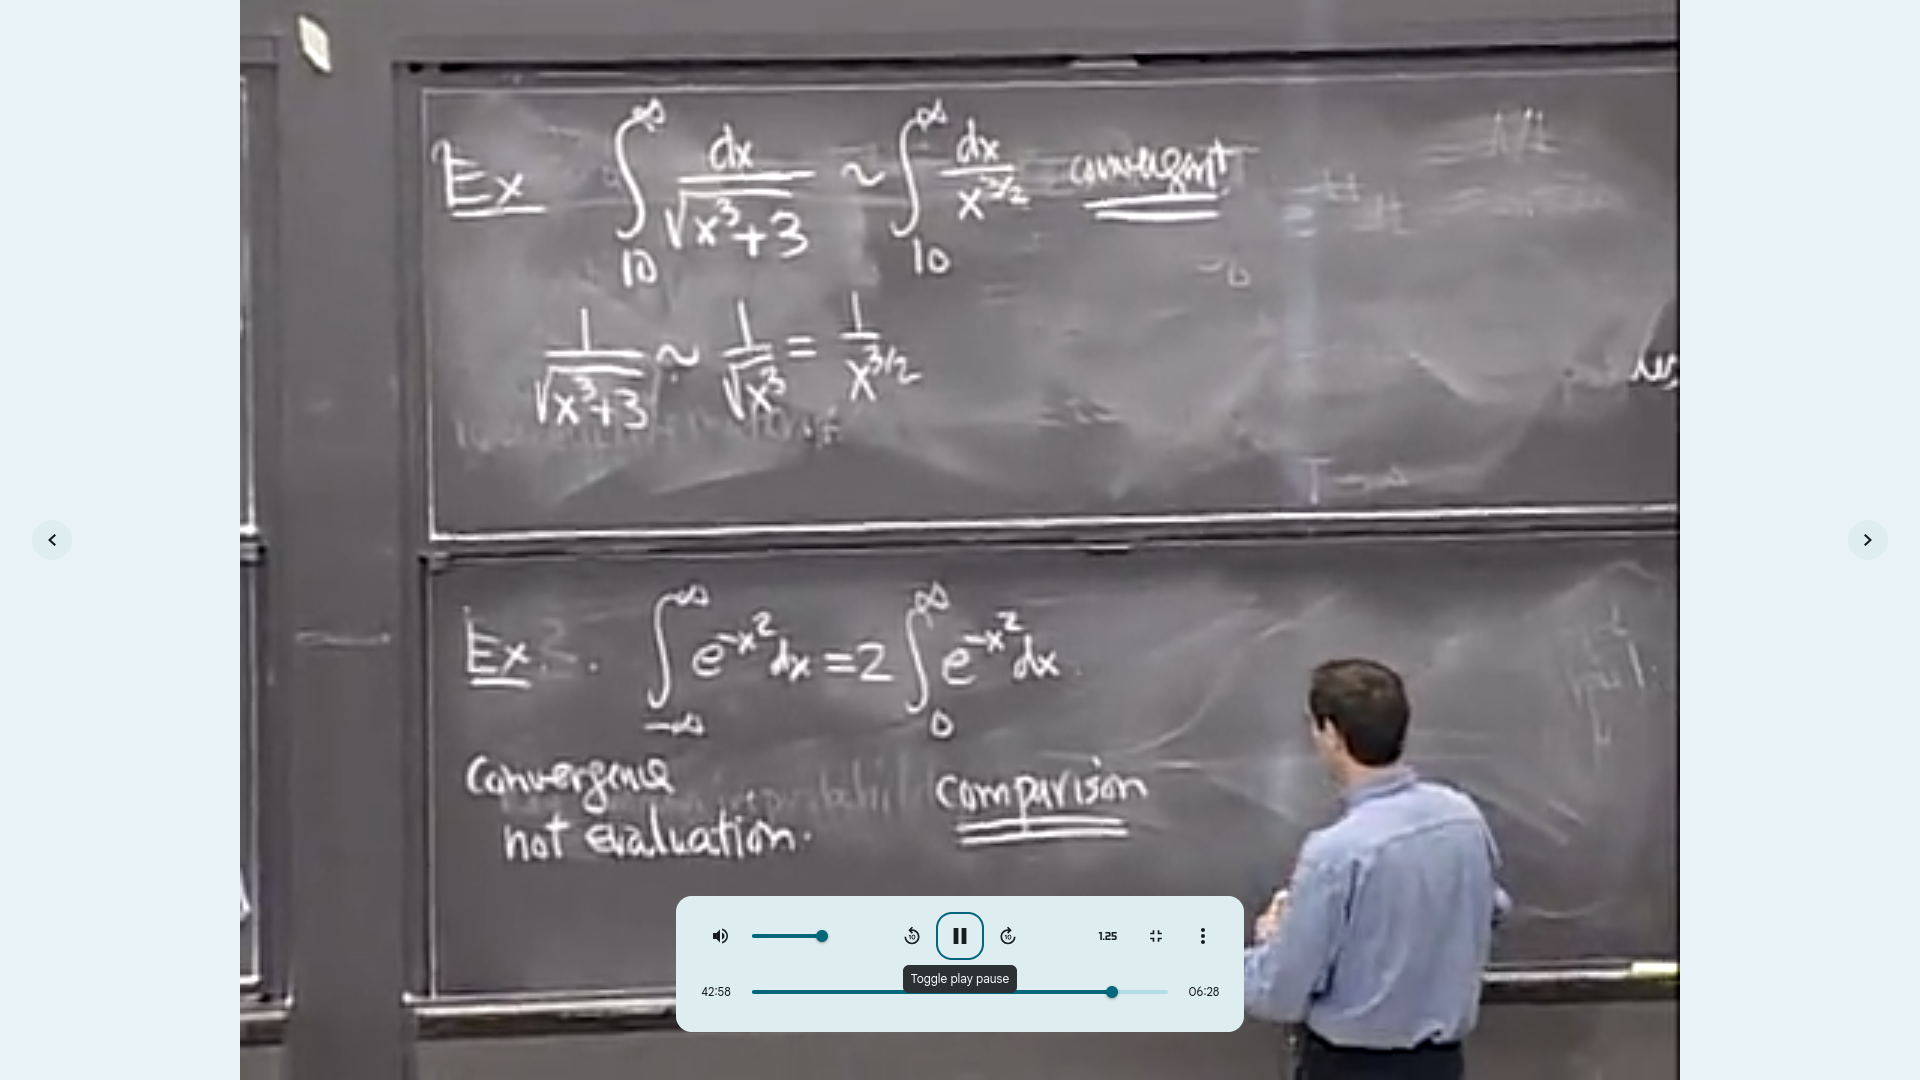 Ex ∫₁₀^∞ dx/√(x³+3) ~ ∫₁₀^∞ dx/x^(3/2) convergent
1/√(x³+3) ~ 1/√x³ = 1/x^(3/2)
Ex. ∫_(-∞)^∞ e^(-x²) dx = 2 ∫₀^∞ e^(-x²) dx
Convergence
not evaluation.
comparison
10
10
1.25
Toggle play pause
42:58
06:28